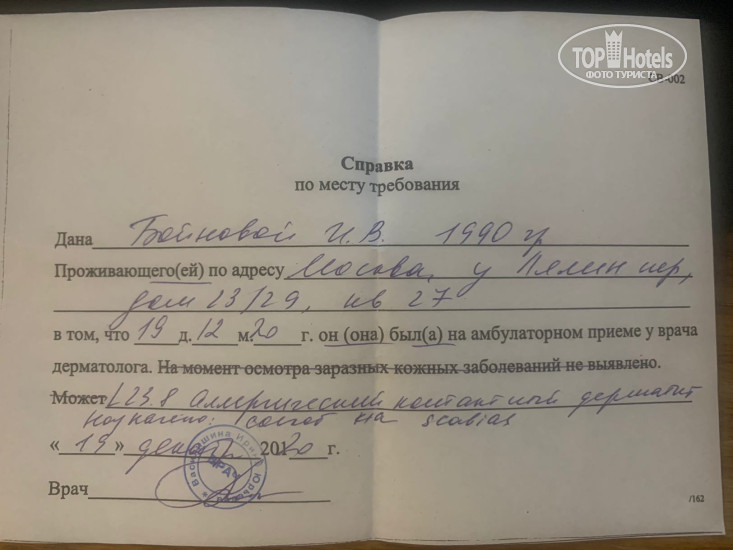 TOP Hotels
ФОТО ТУРИСТА
-002
Справка
по месту требования
Дана Бойновой И.В. 1990 гр
Проживающего(ей) по адресу Москва, у Лялин пер,
дом 23/29, кв 27
в том, что 19 д. 12 м. 20 г. он (она) был(а) на амбулаторном приеме у врача
дерматолога. На момент осмотра заразных кожных заболеваний не выявлено.
Может L23.8 Аллергический контактный дерматит
Назначено: соскоб на scabies
« 19 » декабр 2020 г.
ВРАЧ
Врач
/162